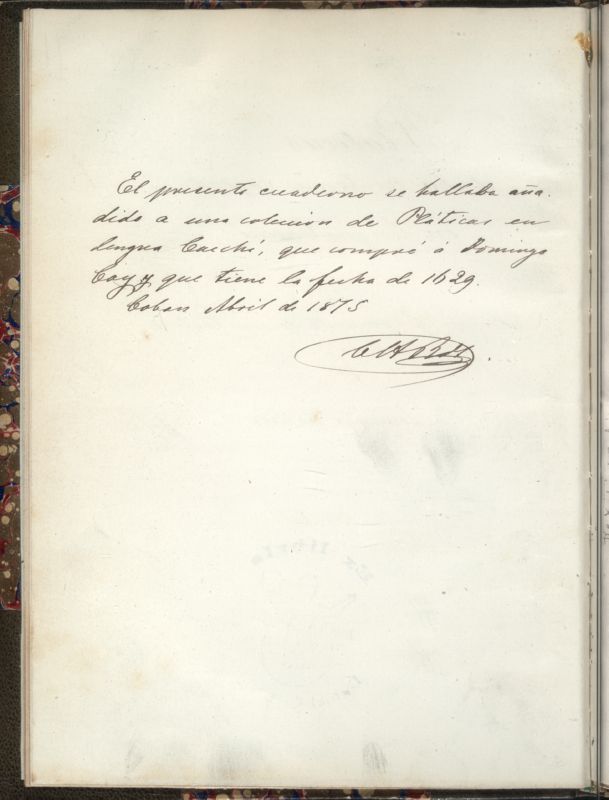 El presente cuaderno se hallaba aña-
dido a una colecion de Pláticas en
lengua Cacchí, que compré á Domingo
Coy y que tiene la fecha de 1629.
Coban Abril de 1875